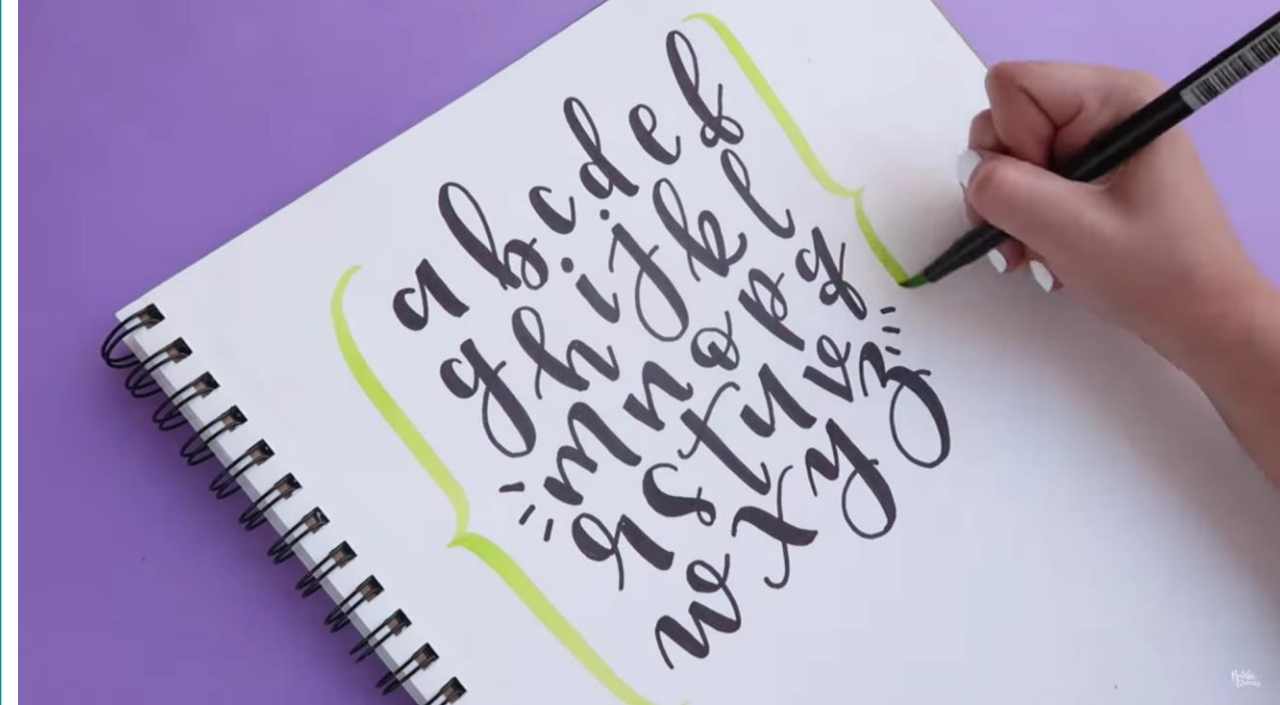 abcdef
ghijkl
mnopq
rstuv
wxyz